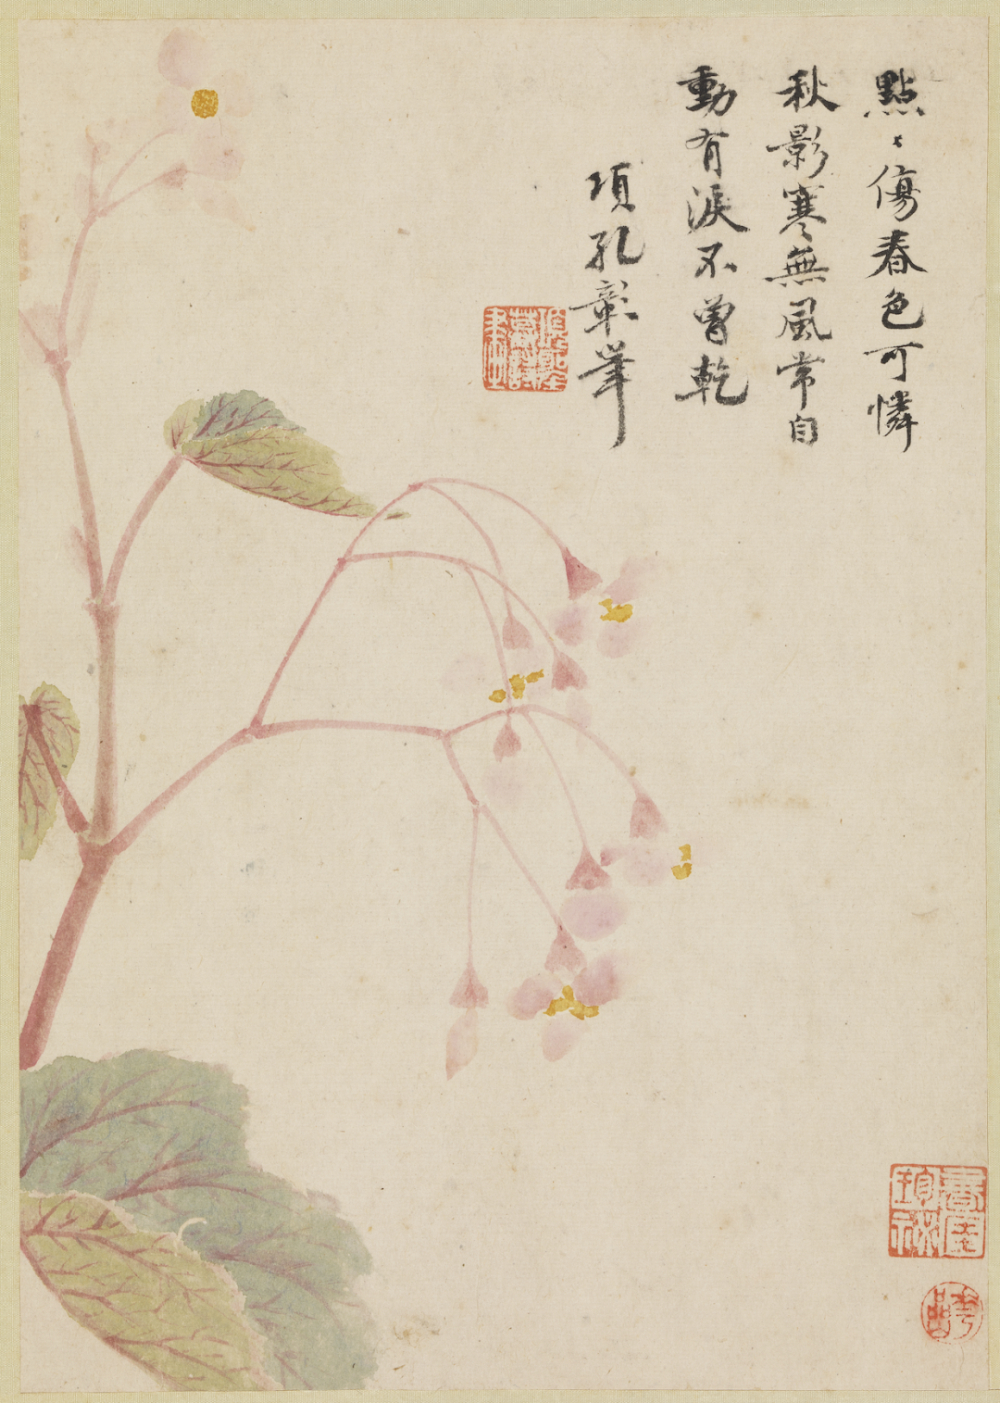 點〻傷春色可憐
秋影寒無風常自
動有淚不曾乾
項孔彰筆